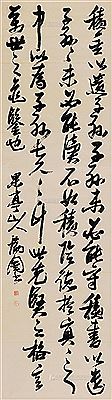 積金以遺子孫〻未必能守積書以遺
子孫〻未必能讀不如積陰德於冥〻之
中以為子孫長久之計此先賢之格言
萬世之龜鑑也